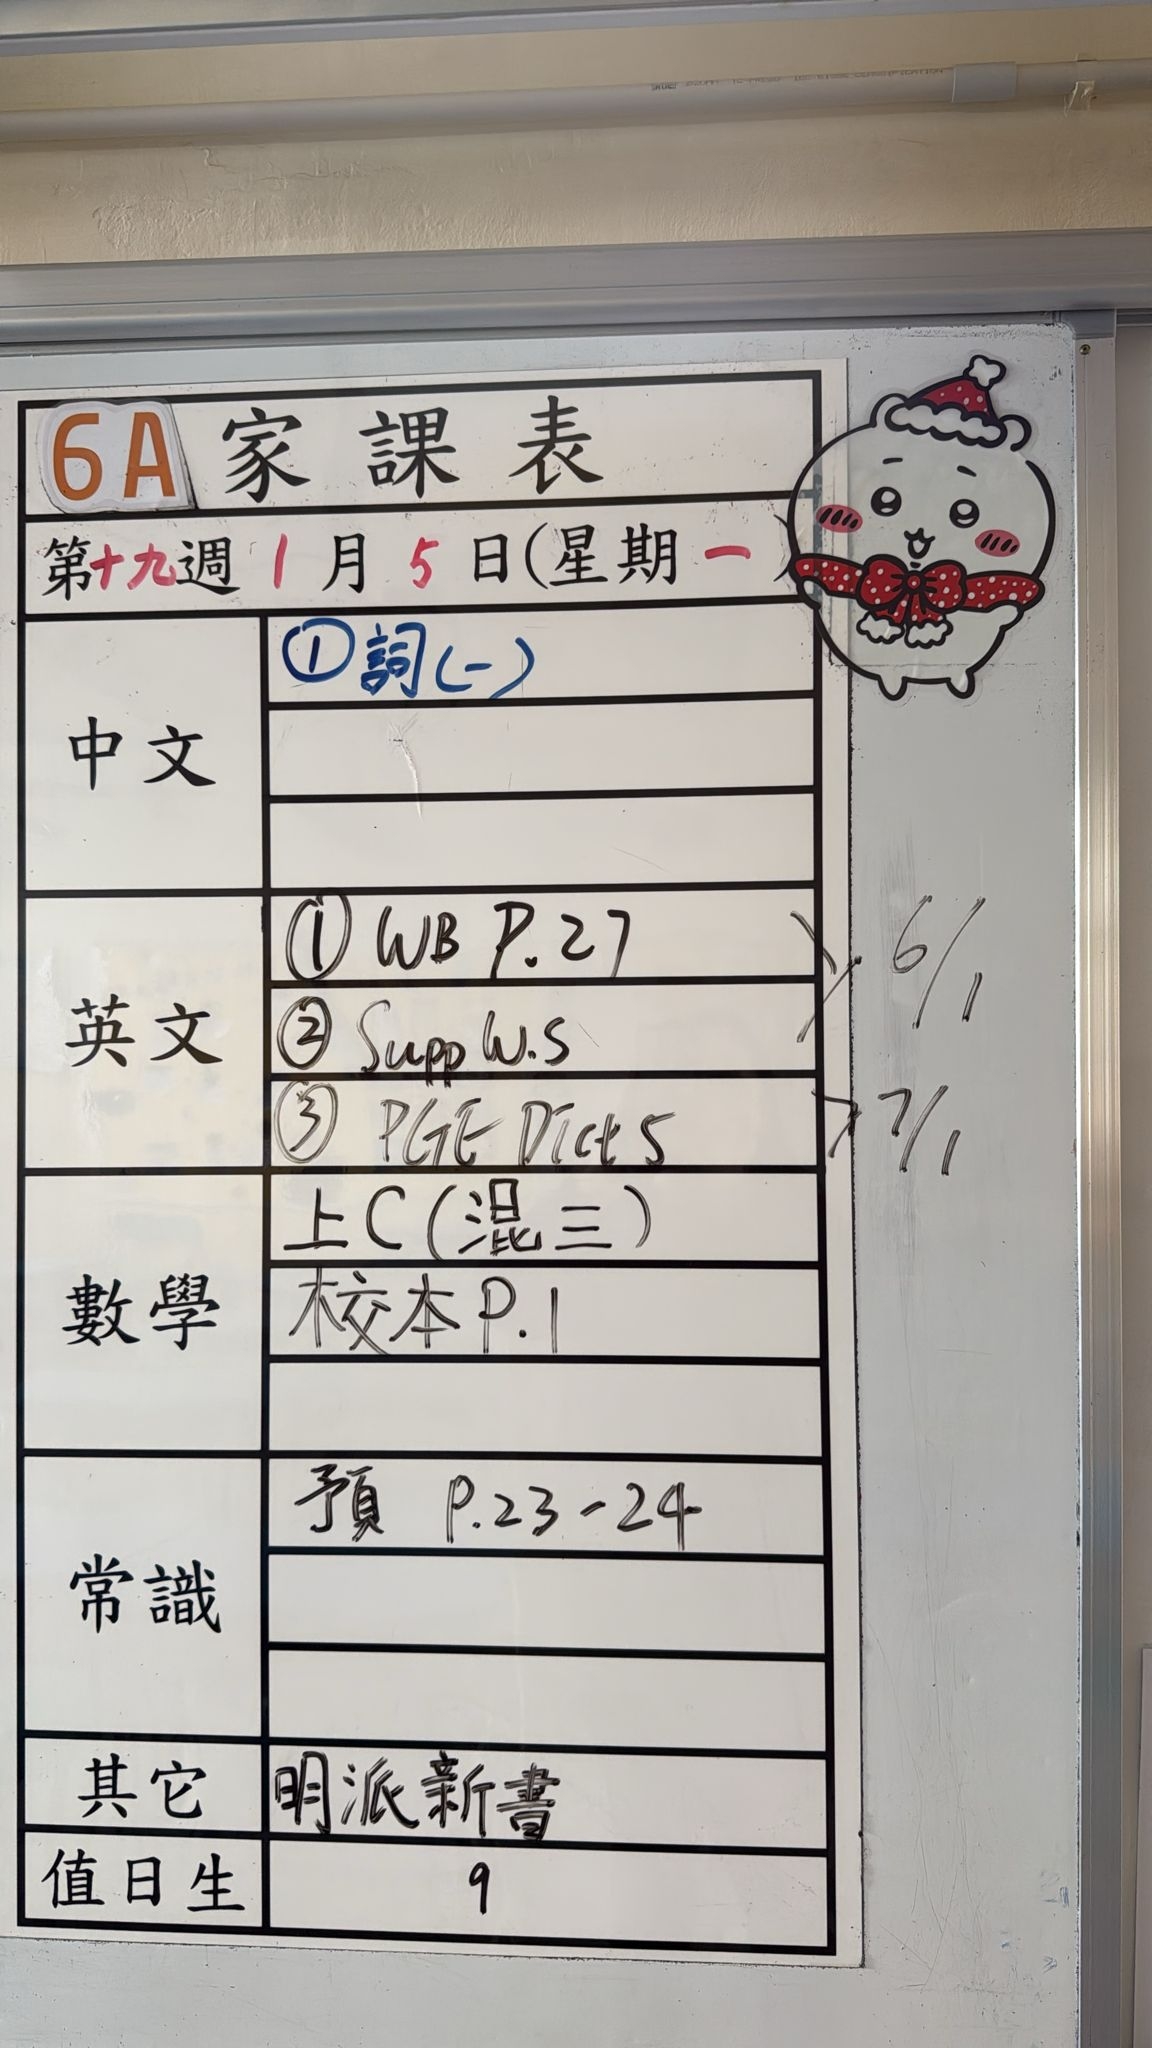 6A 家課表
第十九週 1月5日(星期一)
中文
① 詞(一)
英文
① WB P.27
② Supp W.S
6/1
③ PGE Dict 5
7/1
數學
上C(混三)
校本P.1
常識
預 P.23-24
其它
明派新書
值日生
9